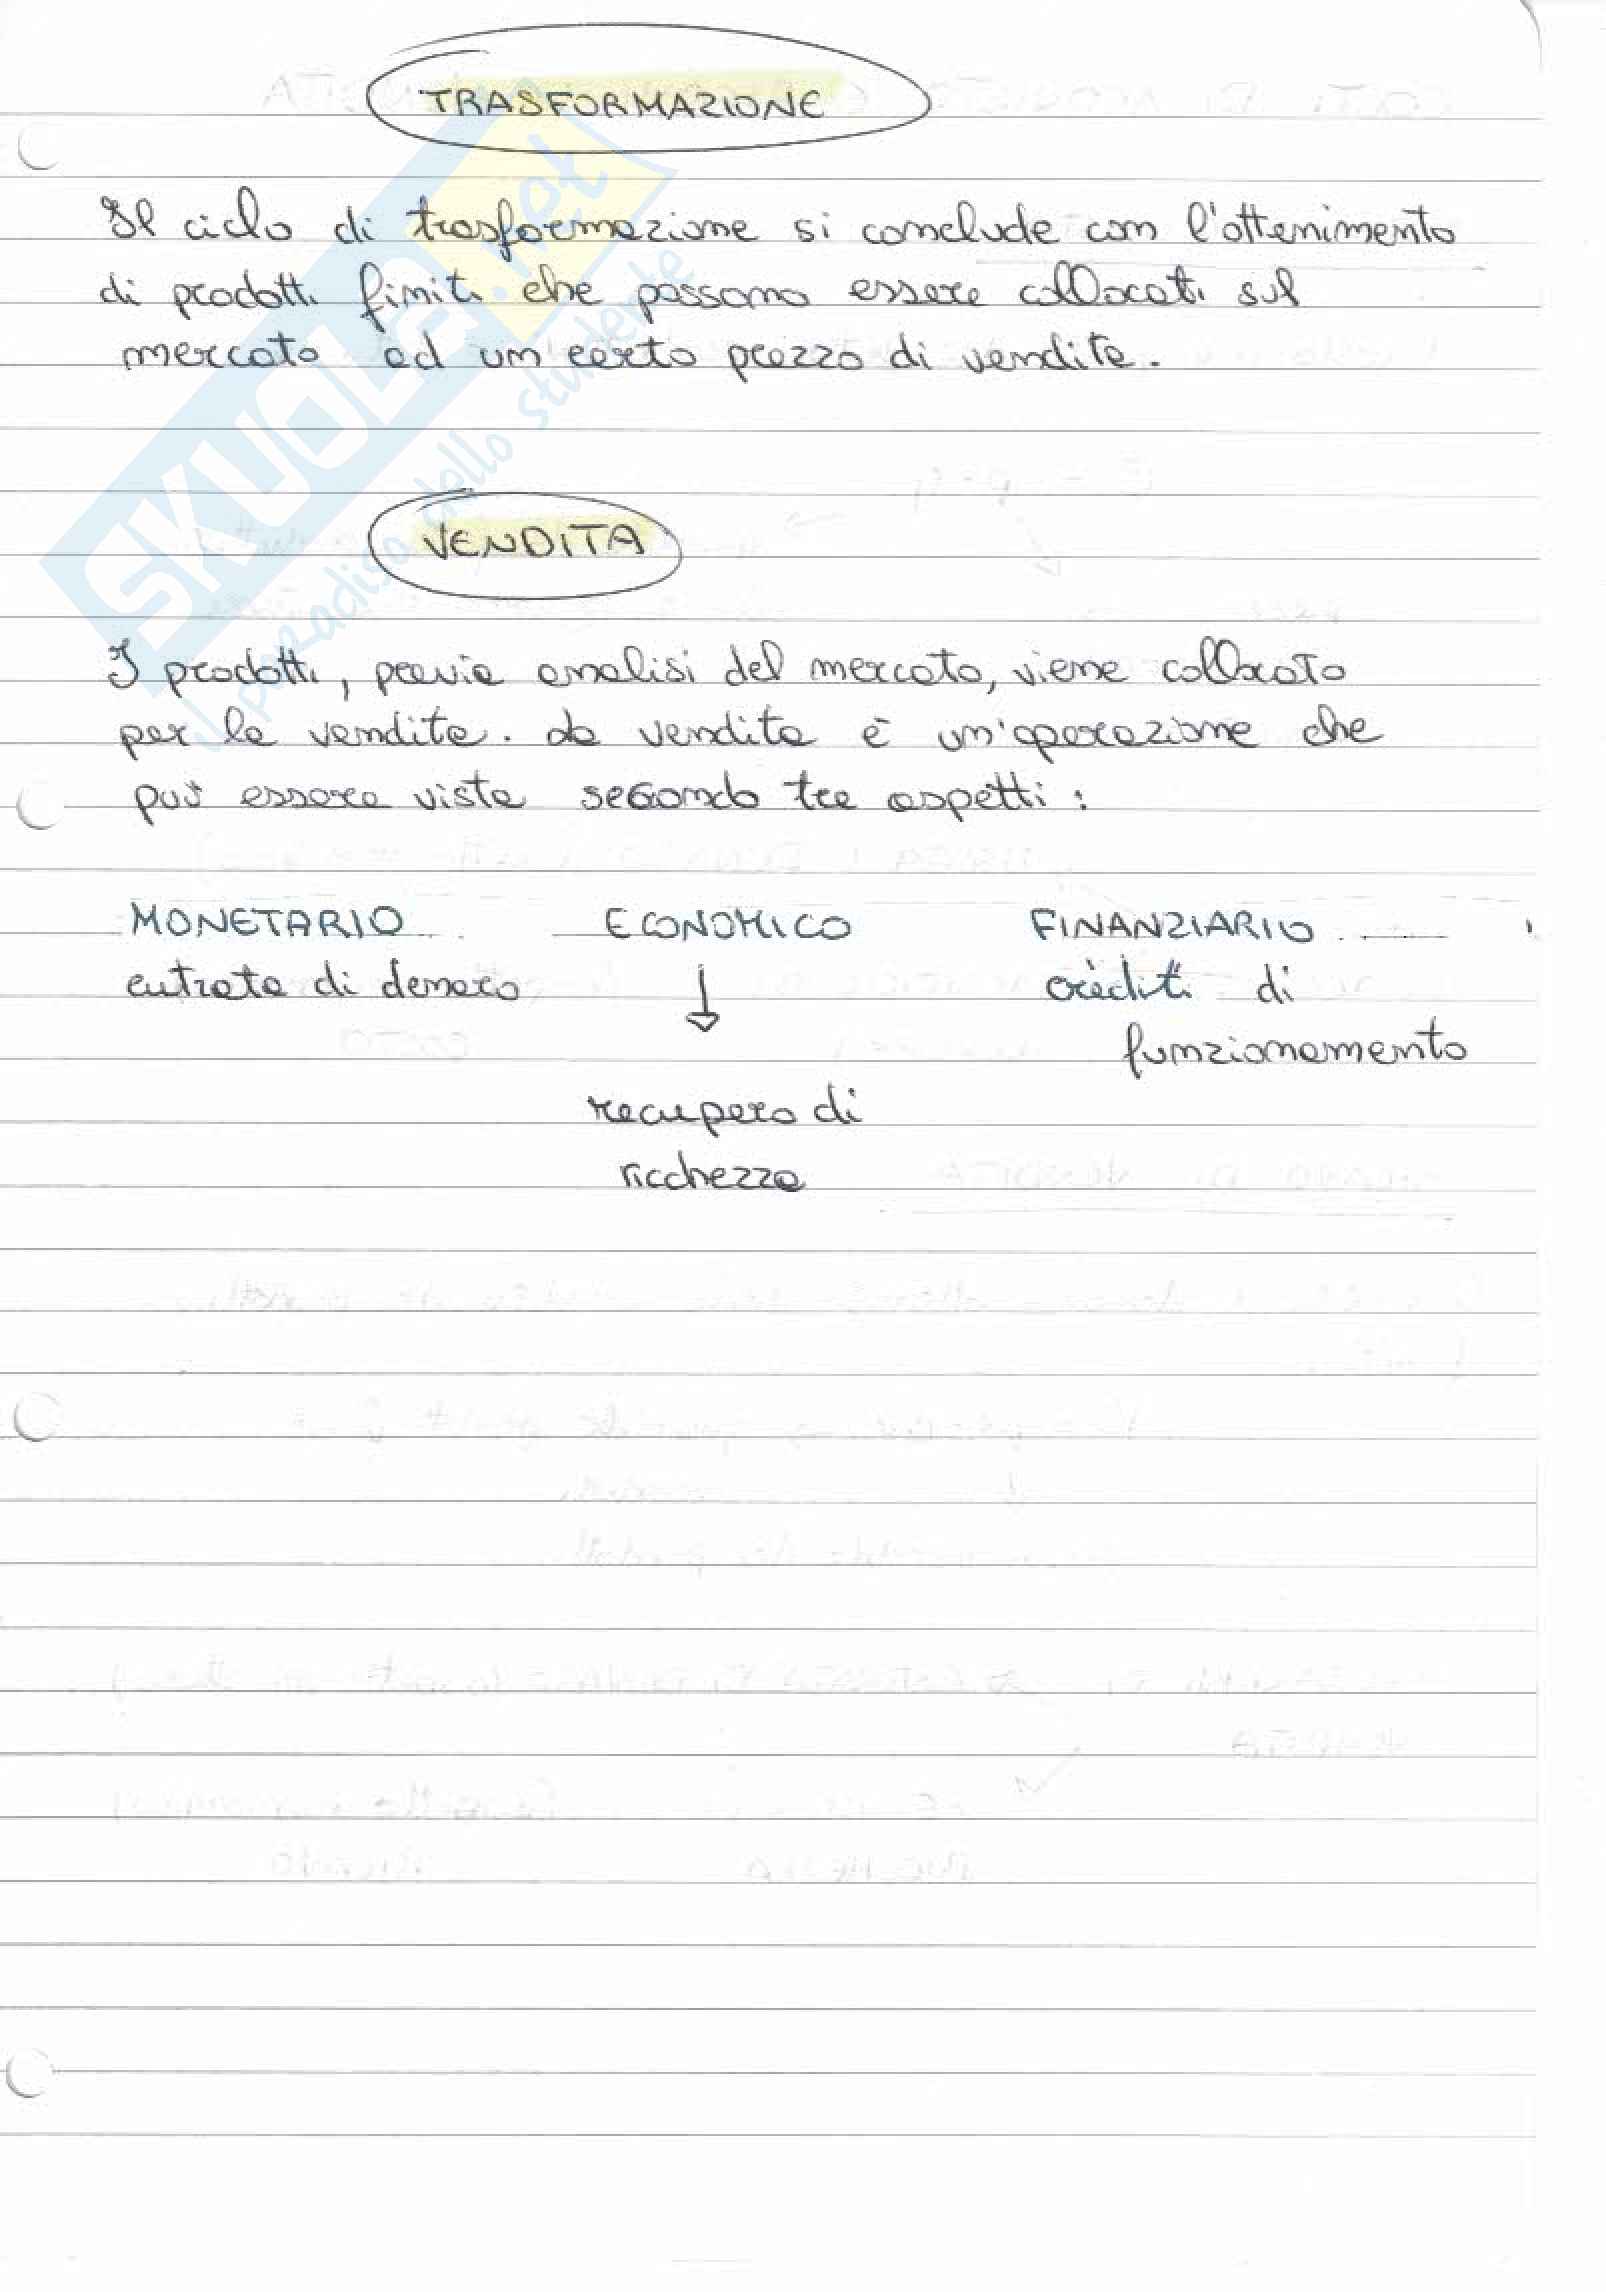 TRASFORMAZIONE
Il ciclo di trasformazione si conclude con l'ottenimento
di prodotti finiti che possono essere collocati sul
mercato ad un certo prezzo di vendita.
VENDITA
I prodotti, previa analisi del mercato, viene collocato
per la vendita. La vendita è un'operazione che
può essere vista secondo tre aspetti:
MONETARIO ECONOMICO FINANZIARIO
entrata di denaro ↓ crediti di
funzionamento
recupero di
ricchezza
SKUOLA.net
il paradiso dello studente